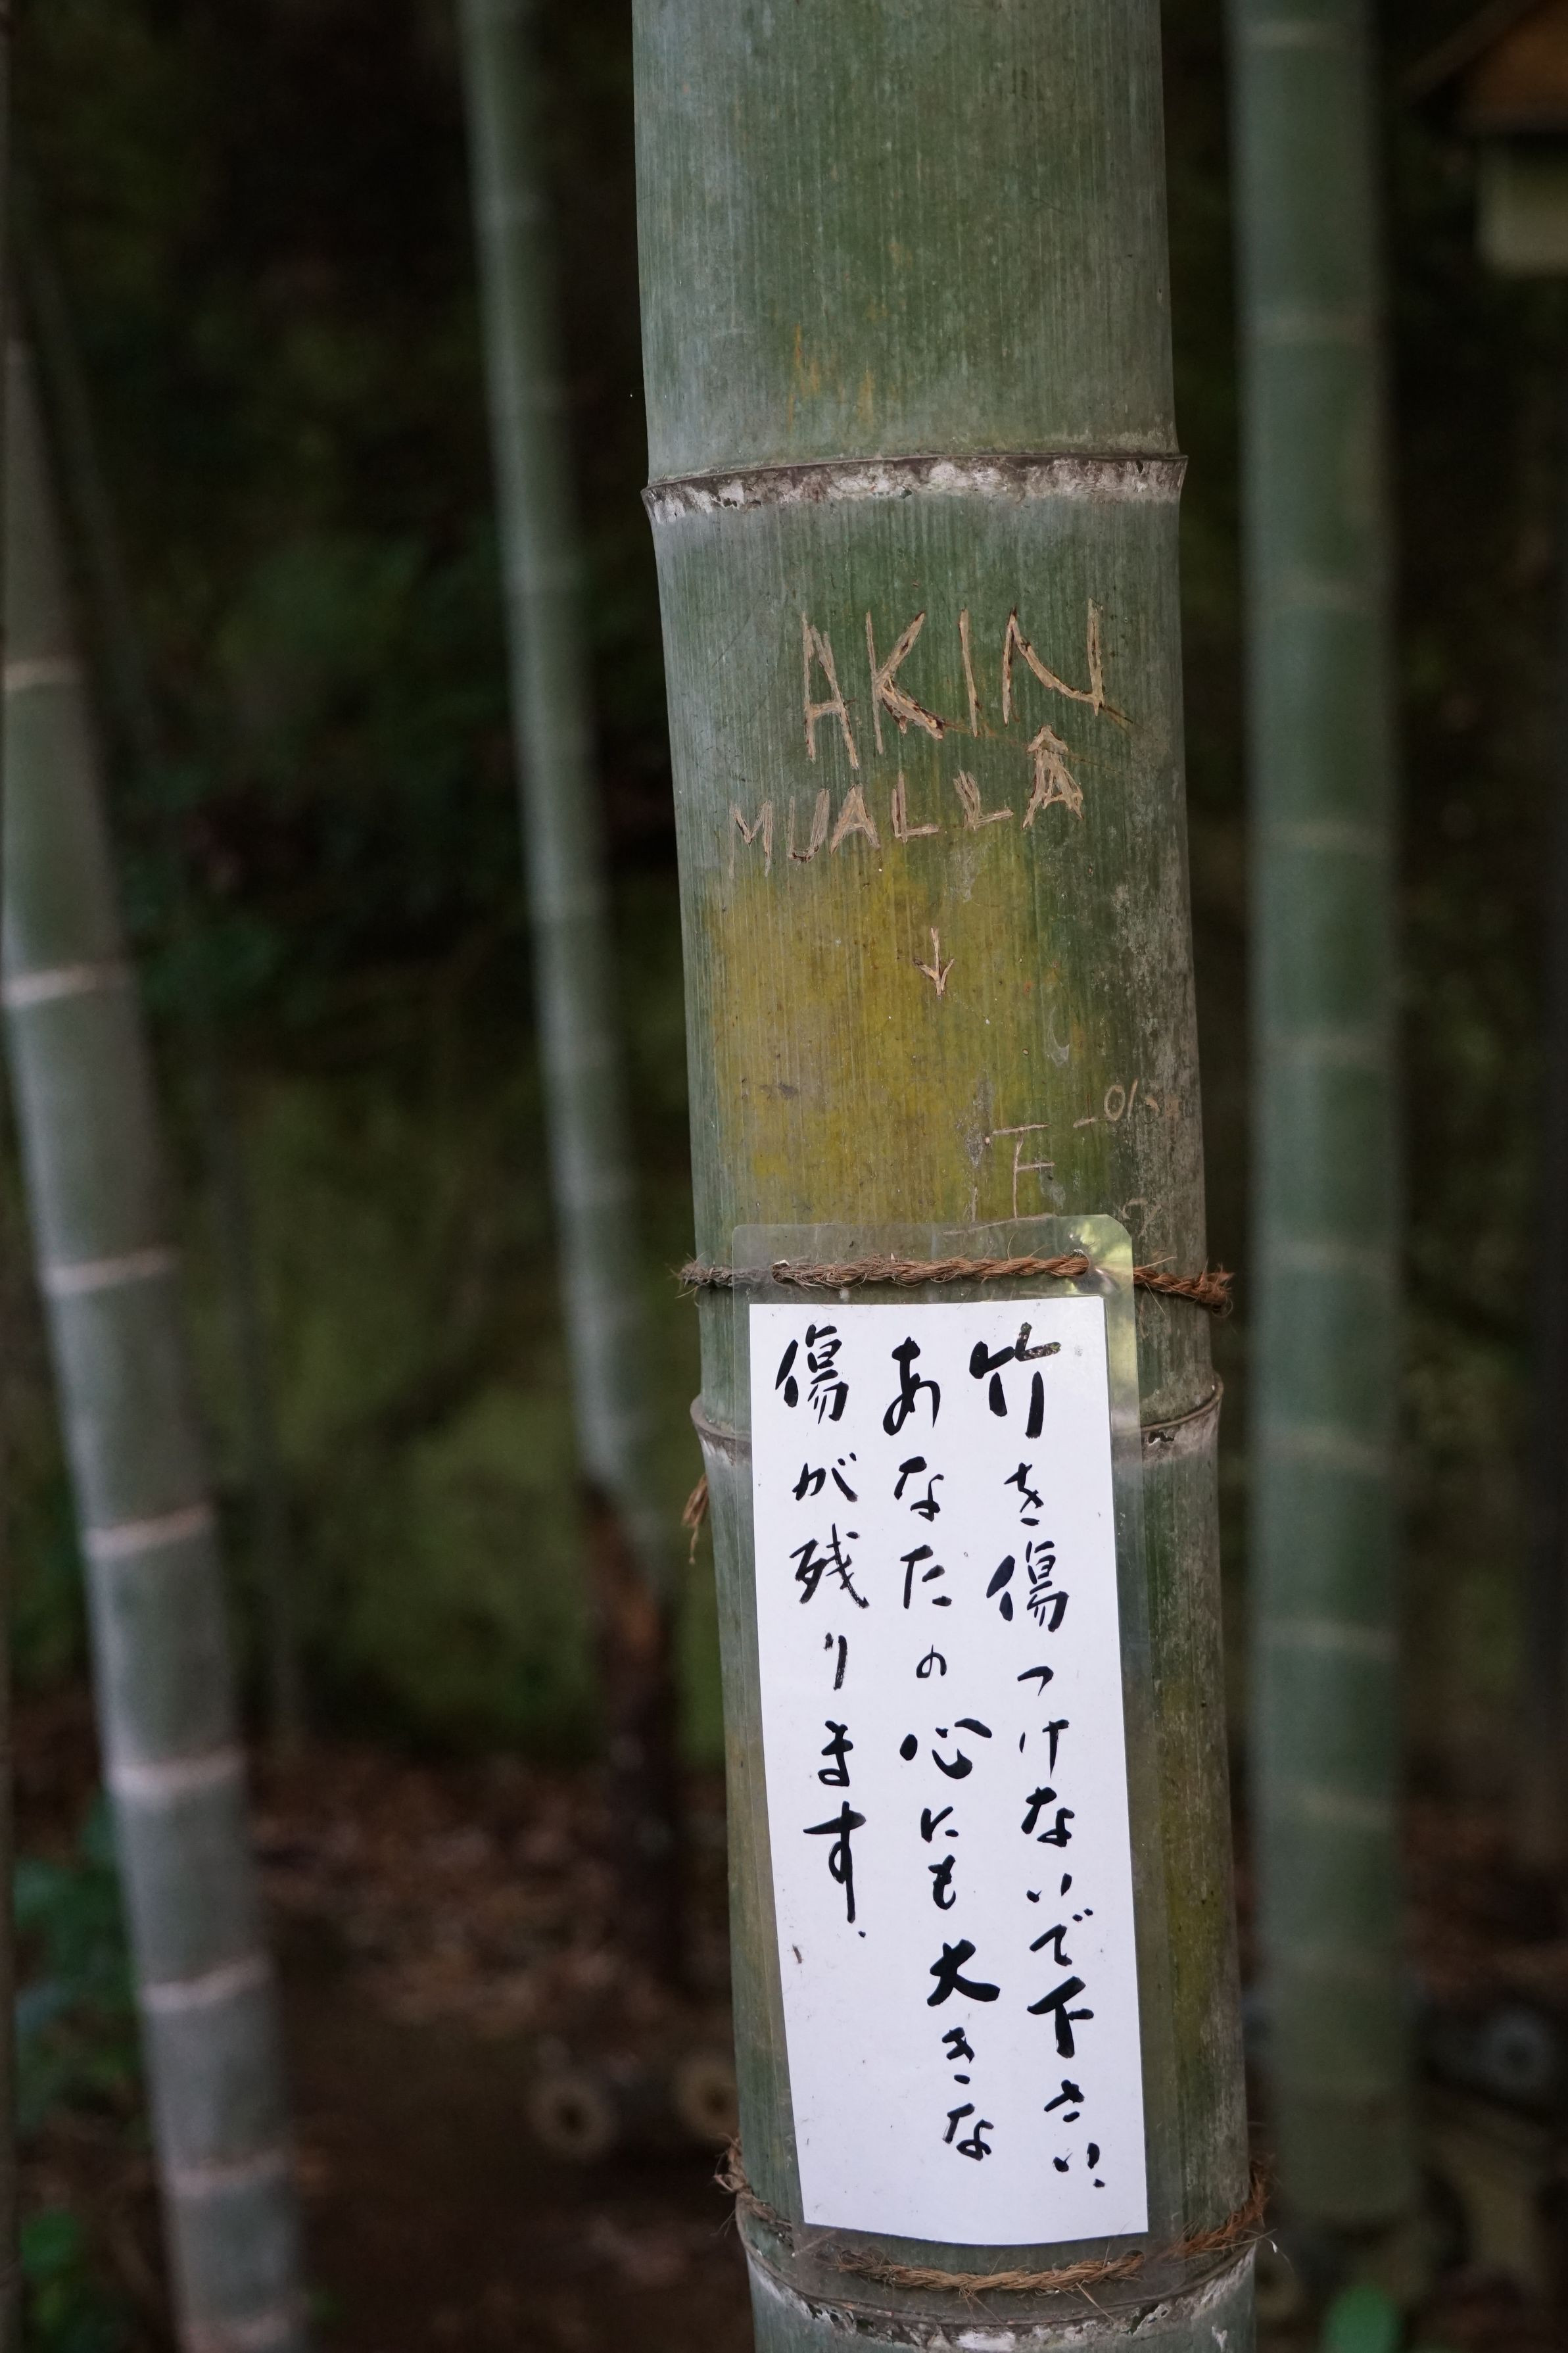 AKIN
MUALLÂ
竹を傷つけないで下さい.
あなたの心にも大きな
傷が残ります.